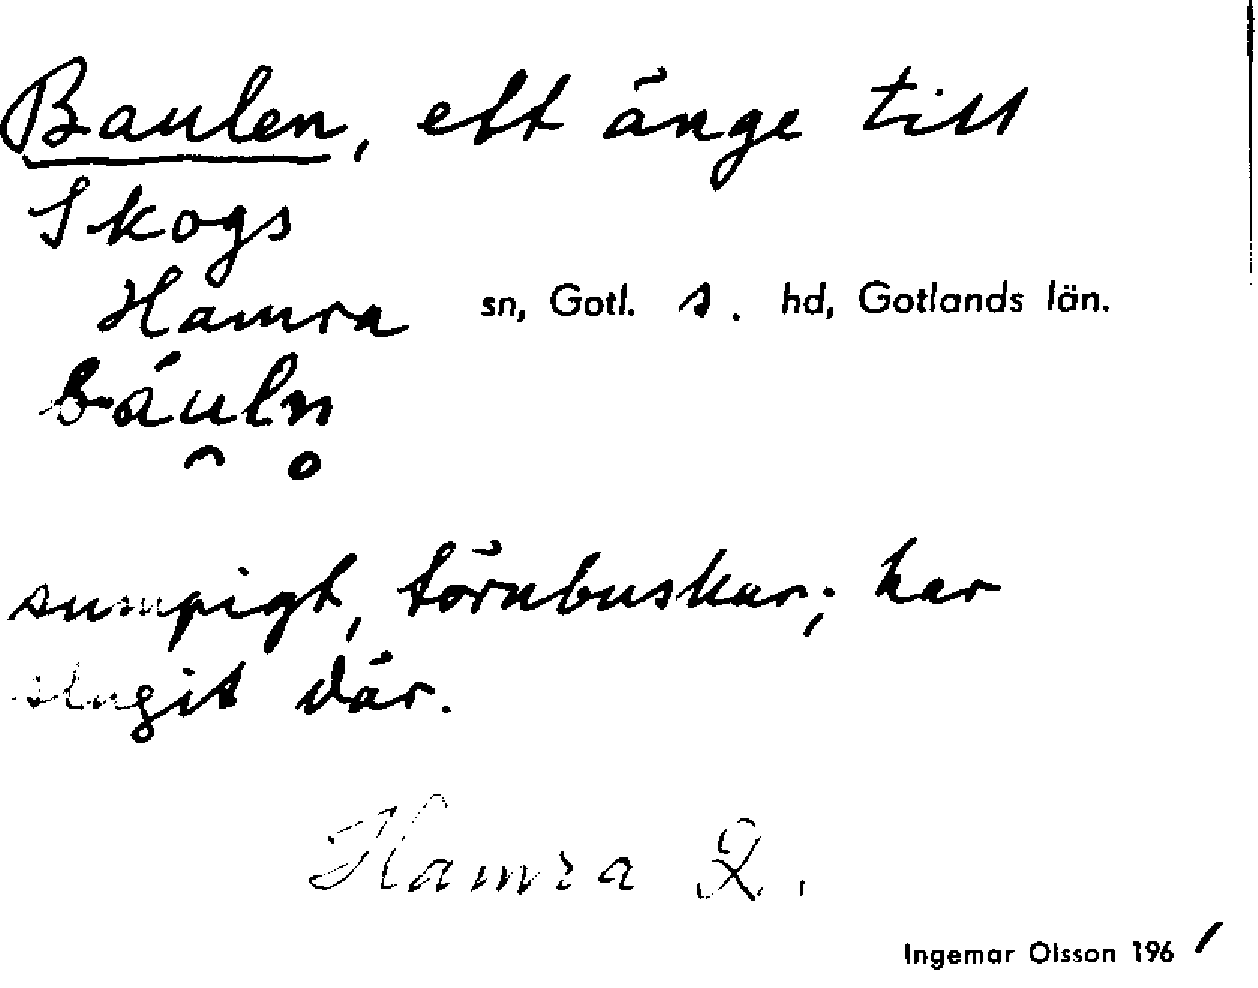 Baulen, ett änge till
Skogs
Hamra sn, Gotl. s. hd, Gotlands län.
báu̯ln̥
sumpigt, törnbuskar; har
slagit där.
Hamra R.
Ingemar Olsson 1961